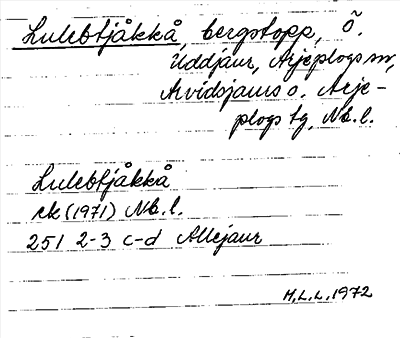 Lulebtjåkkå, bergstopp, Ö.
Uddjaur, Arjeplogs sn,
Arvidsjaurs o. Arje-
plogs tg, Nb. l.
Lulebtjåkkå
ek (1971) Nb. l.
251 2-3 c-d Allejaur
H.L.L. 1972